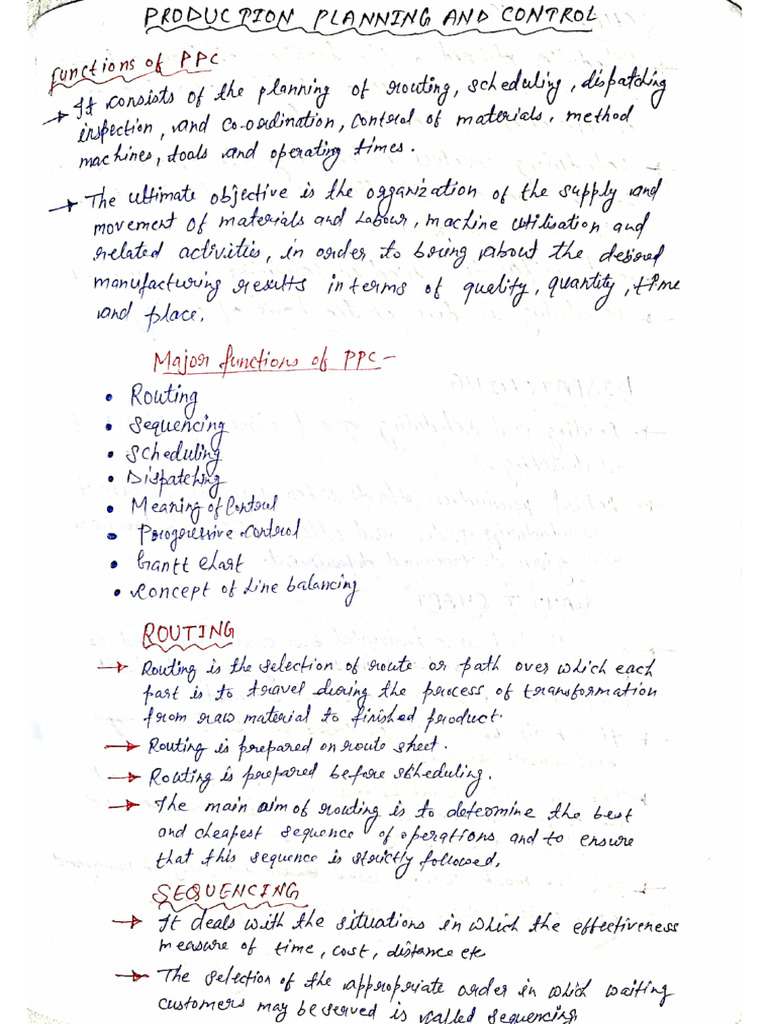 PRODUCTION PLANNING AND CONTROL
Functions of PPC
→ It consists of the planning of routing, scheduling, dispatching
inspection, and co-ordination, control of materials, method
machines, tools and operating times.
→ The ultimate objective is the organization of the supply and
movement of materials and Labour, machine utilisation and
related activities, in order to bring about the desired
manufacturing results in terms of quality, quantity, time
and place.
Major functions of PPC -
• Routing
• Sequencing
• Scheduling
• Dispatching
• Meaning of Control
• Progressive control
• Gantt chart
• Concept of Line balancing
ROUTING
→ Routing is the selection of route or path over which each
part is to travel during the process of transformation
from raw material to finished product.
→ Routing is prepared on route sheet.
→ Routing is prepared before scheduling.
→ The main aim of routing is to determine the best
and cheapest sequence of operations and to ensure
that this sequence is strictly followed.
SEQUENCING
→ It deals with the situations in which the effectiveness
measure of time, cost, distance etc
→ The selection of the appropriate order in which waiting
customers may be served is called sequencing